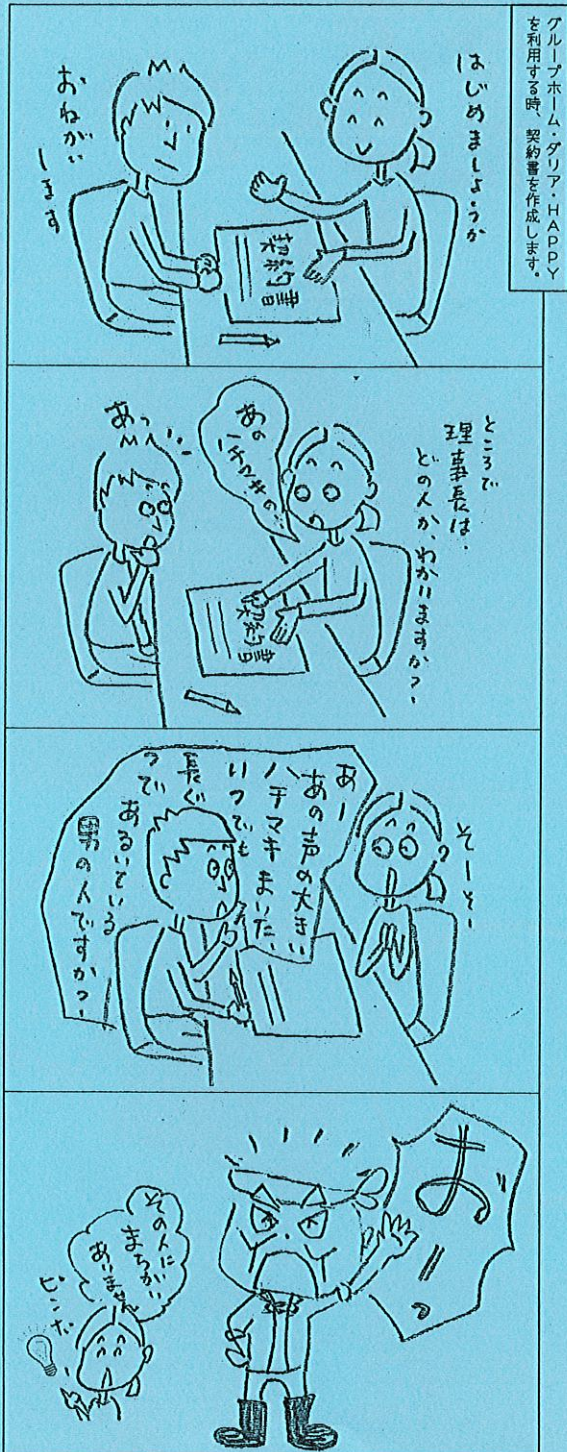 グループホーム・ダリア・HAPPY
を利用する時、契約書を作成します。
はじめましょうか
おねがい
します
契約書
ところで
理事長は、
どの人か、わかりますか?
あの
ハチマキの…
あっ
契約書
そーそー
あー
あの声の大きい
ハチマキまいた、
いつでも
長ぐ
つで
あるいている
男の人ですか?
おーっ
その人に
まちがい
ありません
ピンポ